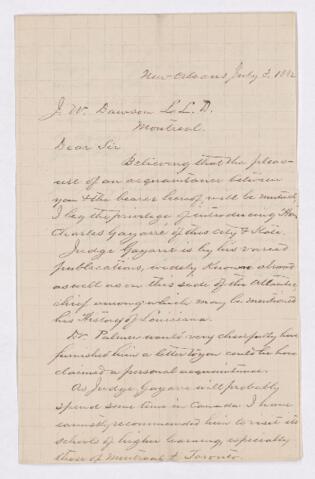 New Orleans July 3, 1882
J. W. Dawson L L. D.
Montreal.
Dear Sir
Believing that the pleas-
ure of an acquaintance between
you & the bearer hereof will be mutual
I beg the privilege of introducing Hon
Charles Gayarré of this City & State.
Judge Gayarré is by his varied
publications, widely known abroad
as well as on this side of the Atlantic
chief among which may be mentioned
his History of Louisiana.
Dr. Palmer would very cheerfully have
furnished him a letter to you could he have
claimed a personal acquaintance.
As Judge Gayarré will probably
spend some time in Canada I have
earnestly recommended him to visit its
schools of higher learning, especially
those of Montreal & Toronto.